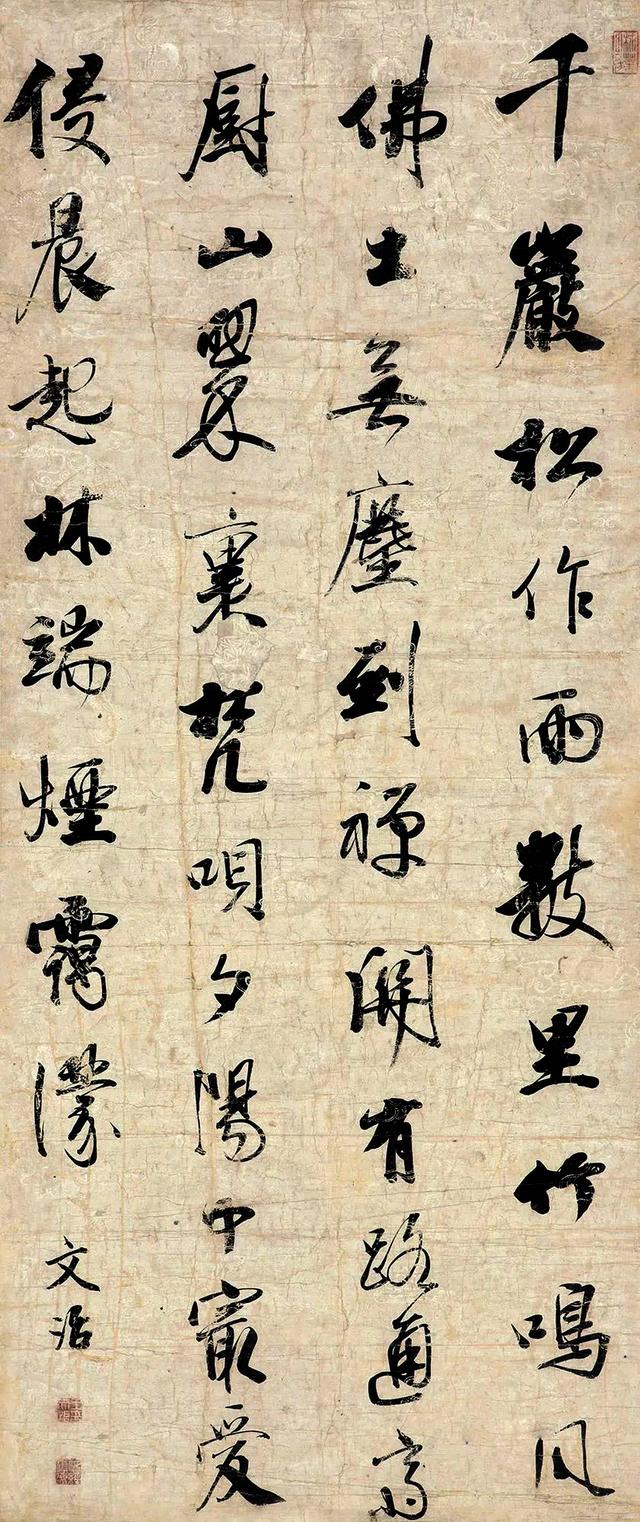 千巖松作雨數里竹鳴風
佛土無塵到禪關有路通齋
厨山翠裏梵唄夕陽中最愛
侵晨起林端煙靄濛 文治